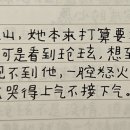 山,她本来打算要
可是看到玱玹,想到
见不到他,一腔怒火
哭得上气不接下气。